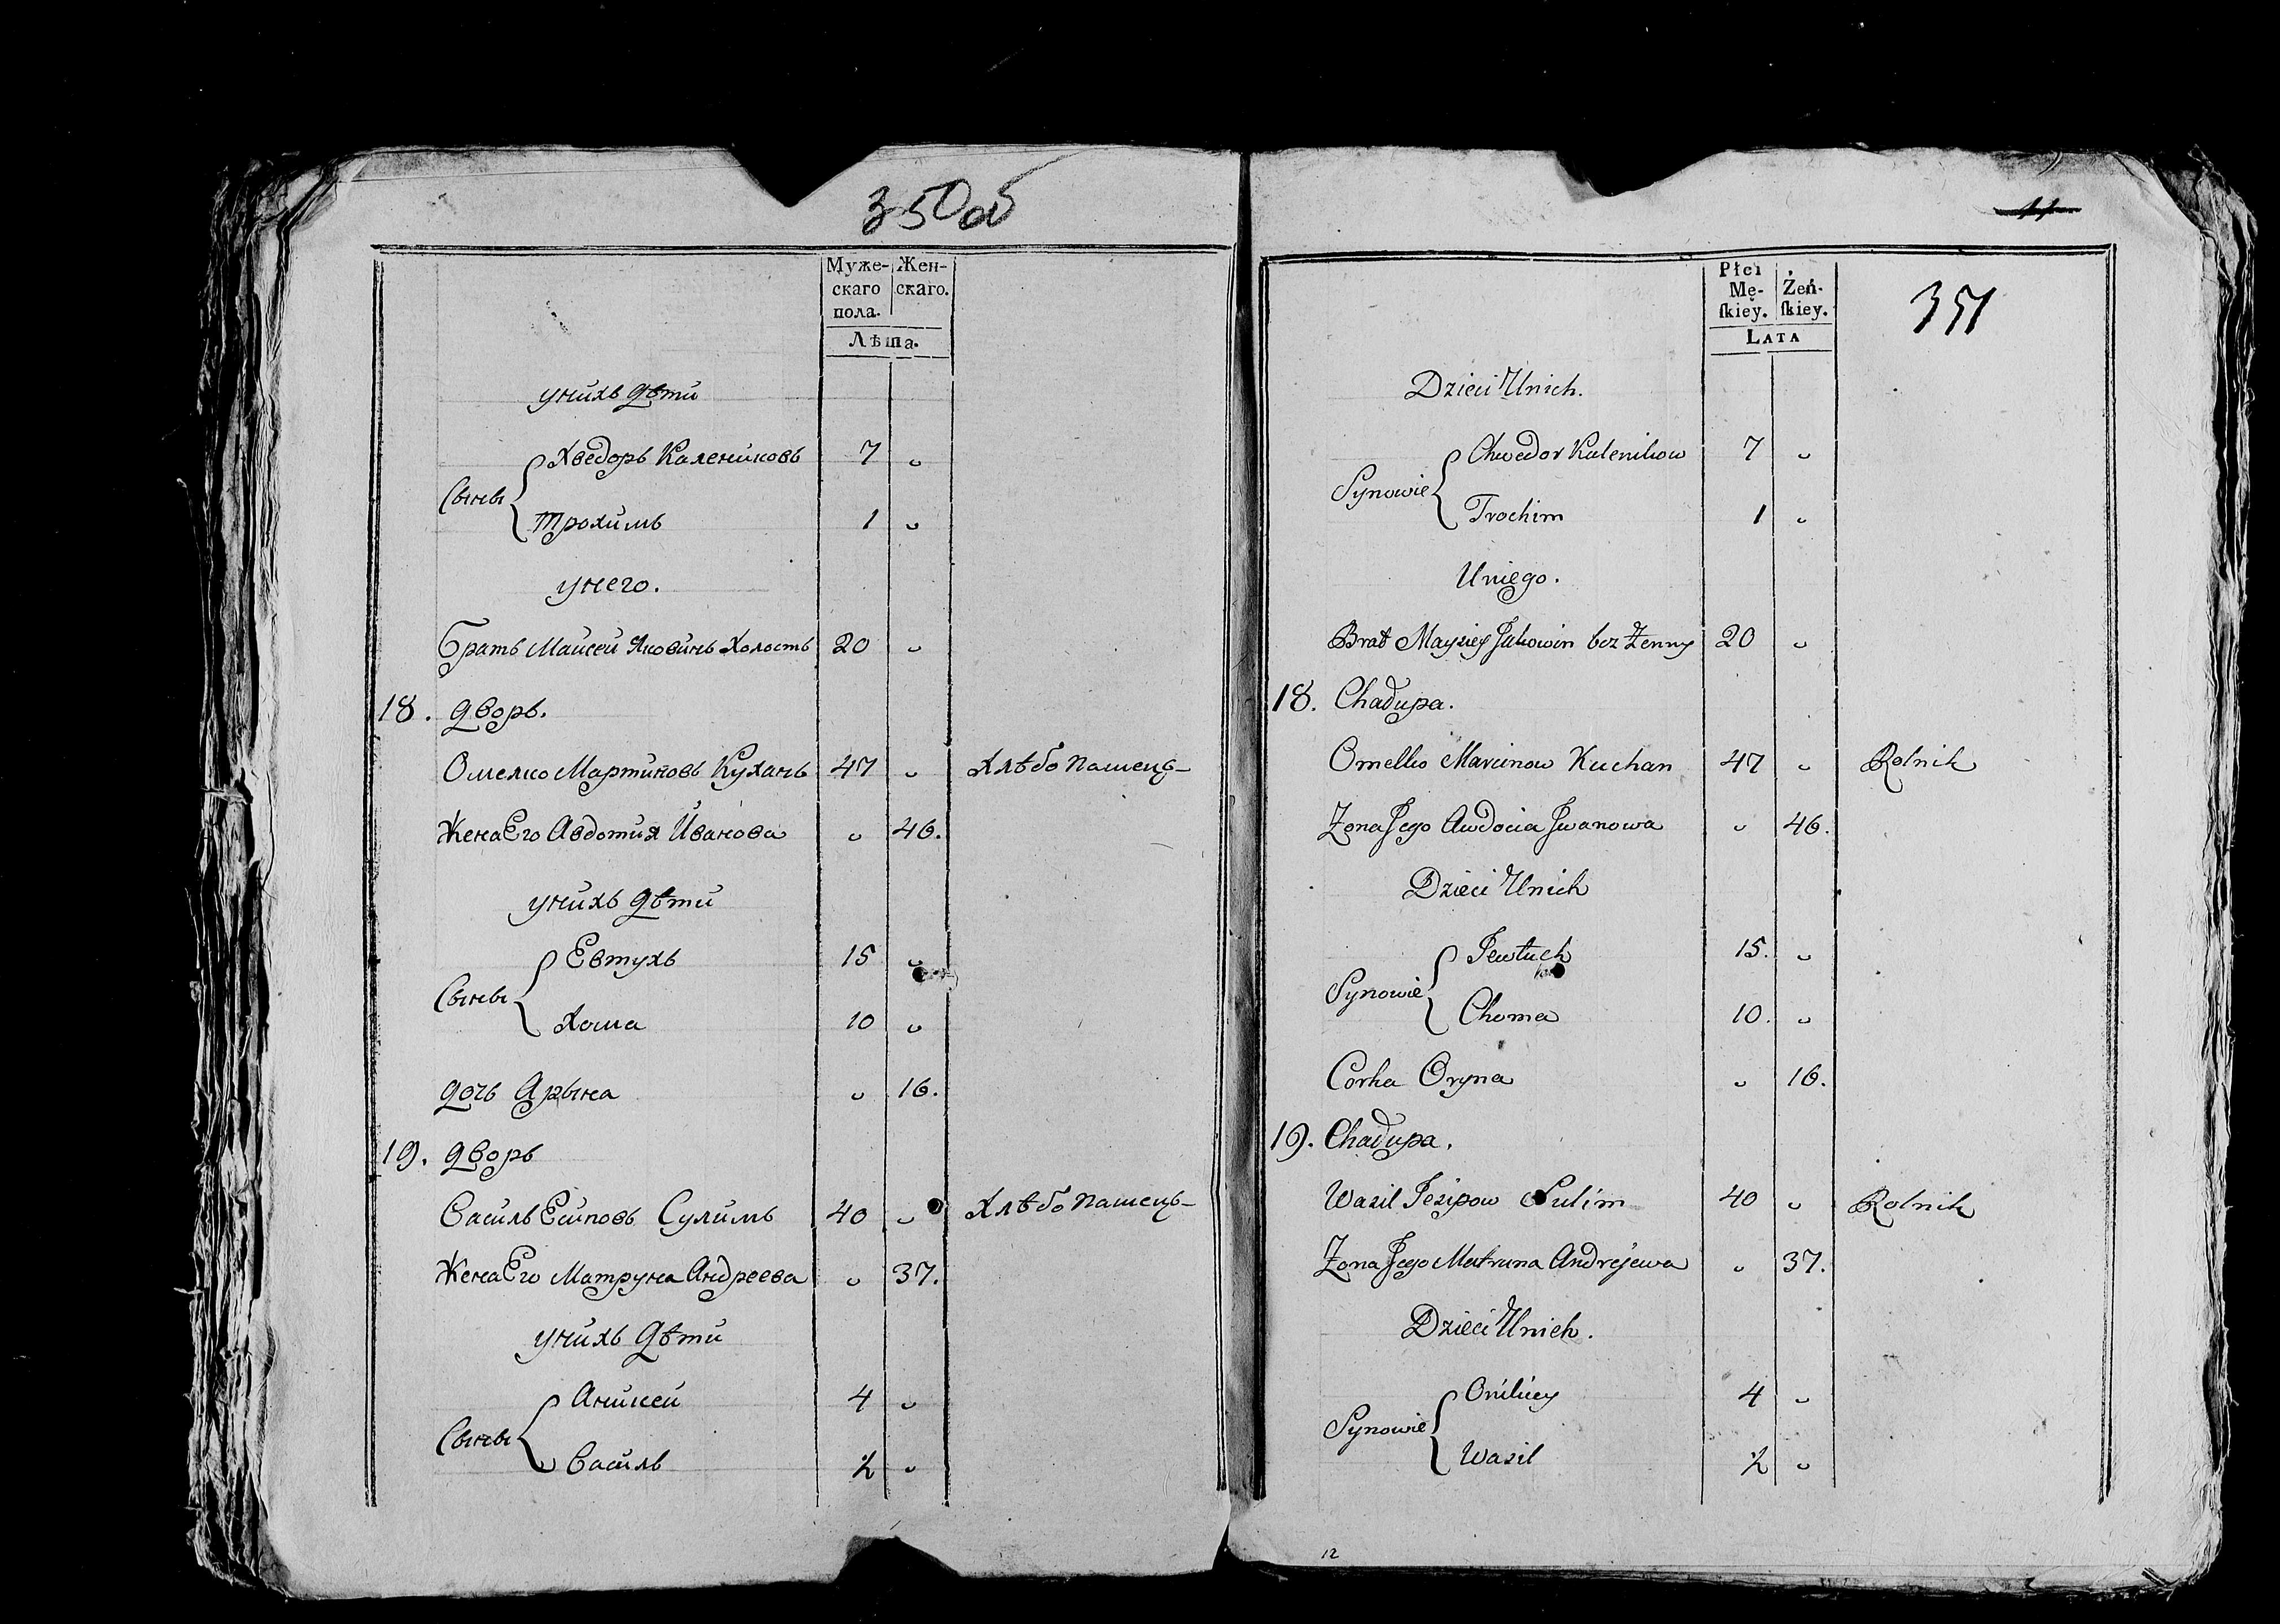 350 об
Муже- Жен-
скаго скаго.
пола.
Лѣта.
унихъ дѣти
Хведоръ Калениковъ 7 "
Сыны
Трохимъ 1 "
унего.
Братъ Майсей Яковинъ Холостъ 20 "
18. дворъ.
Омелко Мартиновъ Куханъ 47 " Хлѣбопашецъ
Жена Его Авдотия Иванова " 46.
унихъ дѣти
Евтухъ 15 "
Сыны
Хома 10 "
дочь Арына " 16.
19. дворъ
Василь Есиповъ Сулимъ 40 " Хлѣбопашецъ
Жена Его Матруна Андреева " 37.
унихъ дѣти
Аникей 4 "
Сыны
Василь ½ "
11
351
Płci
Mę- Żeń-
ſkiey. ſkiey.
LATA
Dzieci Unich.
Chwedor Kalenikow 7 "
Synowie
Trochim 1 "
Uniego.
Brat Maysiey Jakowin bez Żenny 20 "
18. Chadupa.
Omelko Marcinow Kuchan 47 " Rolnik
Żona Jego Awdocia Jwanowa " 46.
Dzieci Unich
Jewtuch 15. "
Synowie
Choma 10. "
Corka Oryna " 16.
19. Chadupa.
Wasil Jesipow Sulim 40 " Rolnik
Żona Jego Matruna Andrejewa " 37.
Dzieci Unich.
Onikiey 4 "
Synowie
Wasil ½ "
12